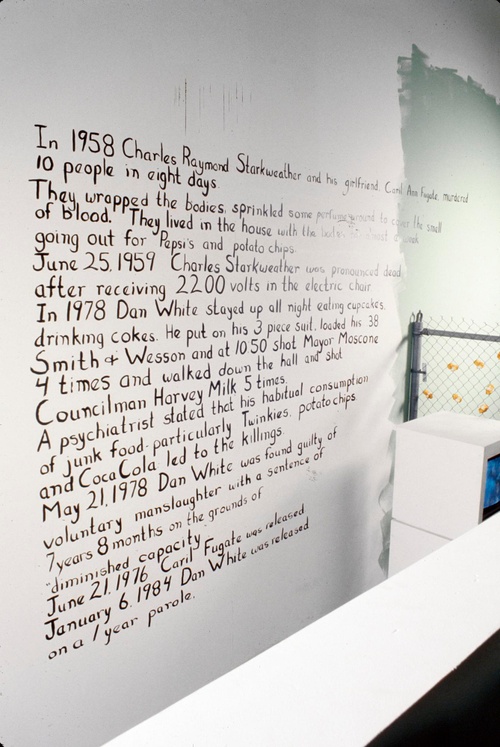 In 1958 Charles Raymond Starkweather and his girlfriend Caril Ann Fugate, murdered
10 people in eight days.
They wrapped the bodies, sprinkled some perfume around to cover the smell
of blood. They lived in the house with the bodies almost a week
going out for Pepsi's and potato chips.
June 25, 1959 Charles Starkweather was pronounced dead
after receiving 2200 volts in the electric chair.
In 1978 Dan White stayed up all night eating cupcakes,
drinking cokes. He put on his 3 piece suit, loaded his 38
Smith + Wesson and at 10:50 shot Mayor Moscone
4 times and walked down the hall and shot
Councilman Harvey Milk 5 times.
A psychiatrist stated that his habitual consumption
of junk food-particularly Twinkies, potato chips
and Coca Cola led to the killings.
May 21, 1978 Dan White was found guilty of
voluntary manslaughter with a sentence of
7 years 8 months on the grounds of
"diminished capacity"
June 21, 1976 Caril Fugate was released
January 6, 1984 Dan White was released
on a 1 year parole.